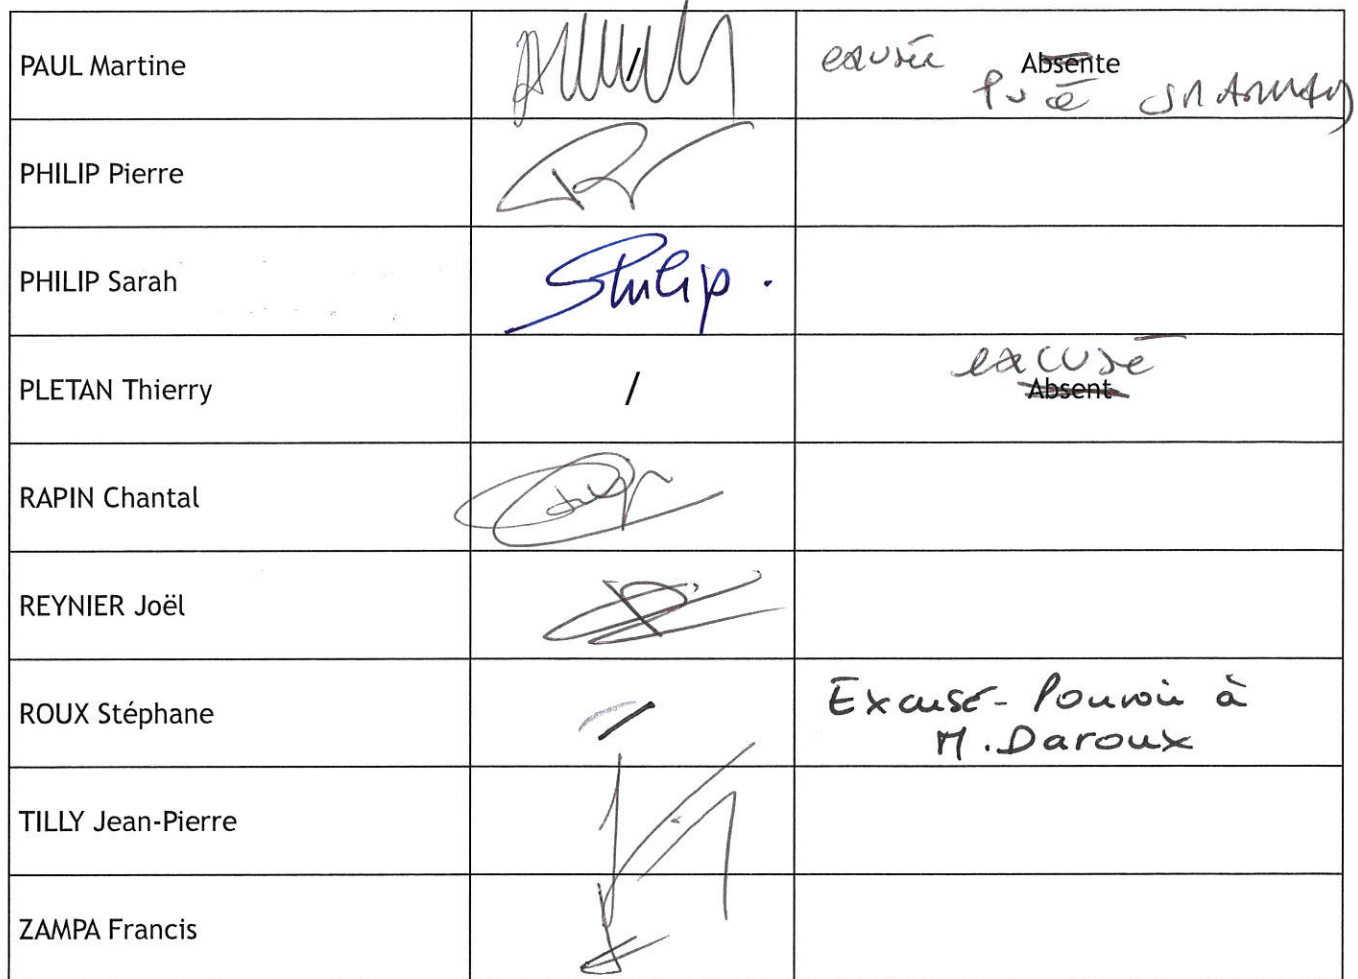 PAUL Martine
excusée Absente
PHILIP Pierre
PHILIP Sarah
SPhilip.
excusé
PLETAN Thierry / Absent
RAPIN Chantal
REYNIER Joël
ROUX Stéphane / Excusé - Pouvoir à
M. Daroux
TILLY Jean-Pierre
ZAMPA Francis